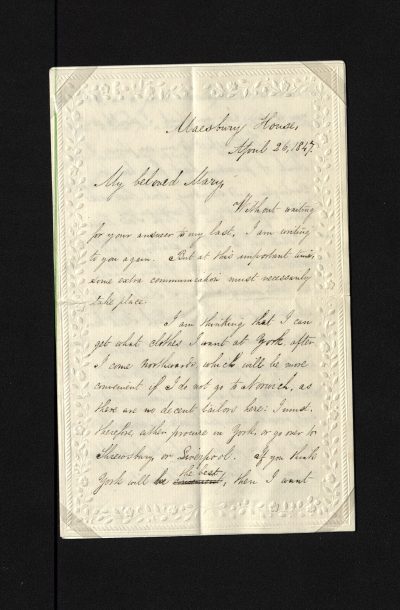 Maesbury House,
April 26, 1847.
My beloved Mary,
Without waiting
for your answer to my last, I am writing
to you again. But at this important time,
some extra communication must necessarily
take place.
I am thinking that I can
get what clothes I want at York after
I come Northwards, which will be more
convenient if I do not go to Norwich, as
there are no decent tailors here: I must,
therefore, either procure in York, or go over to
Shrewsbury or Liverpool. If you think
the best
York will be, then I want